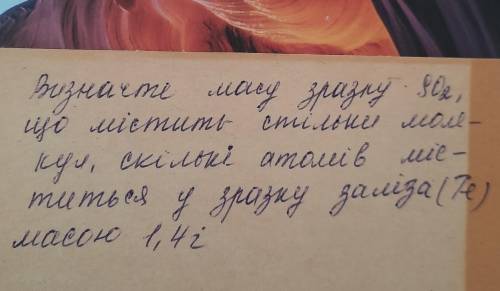 Визначте масу зразку SO₂,
що містить стільки моле-
кул, скільки атомів міс-
титься у зразку заліза (Fe)
масою 1,4г